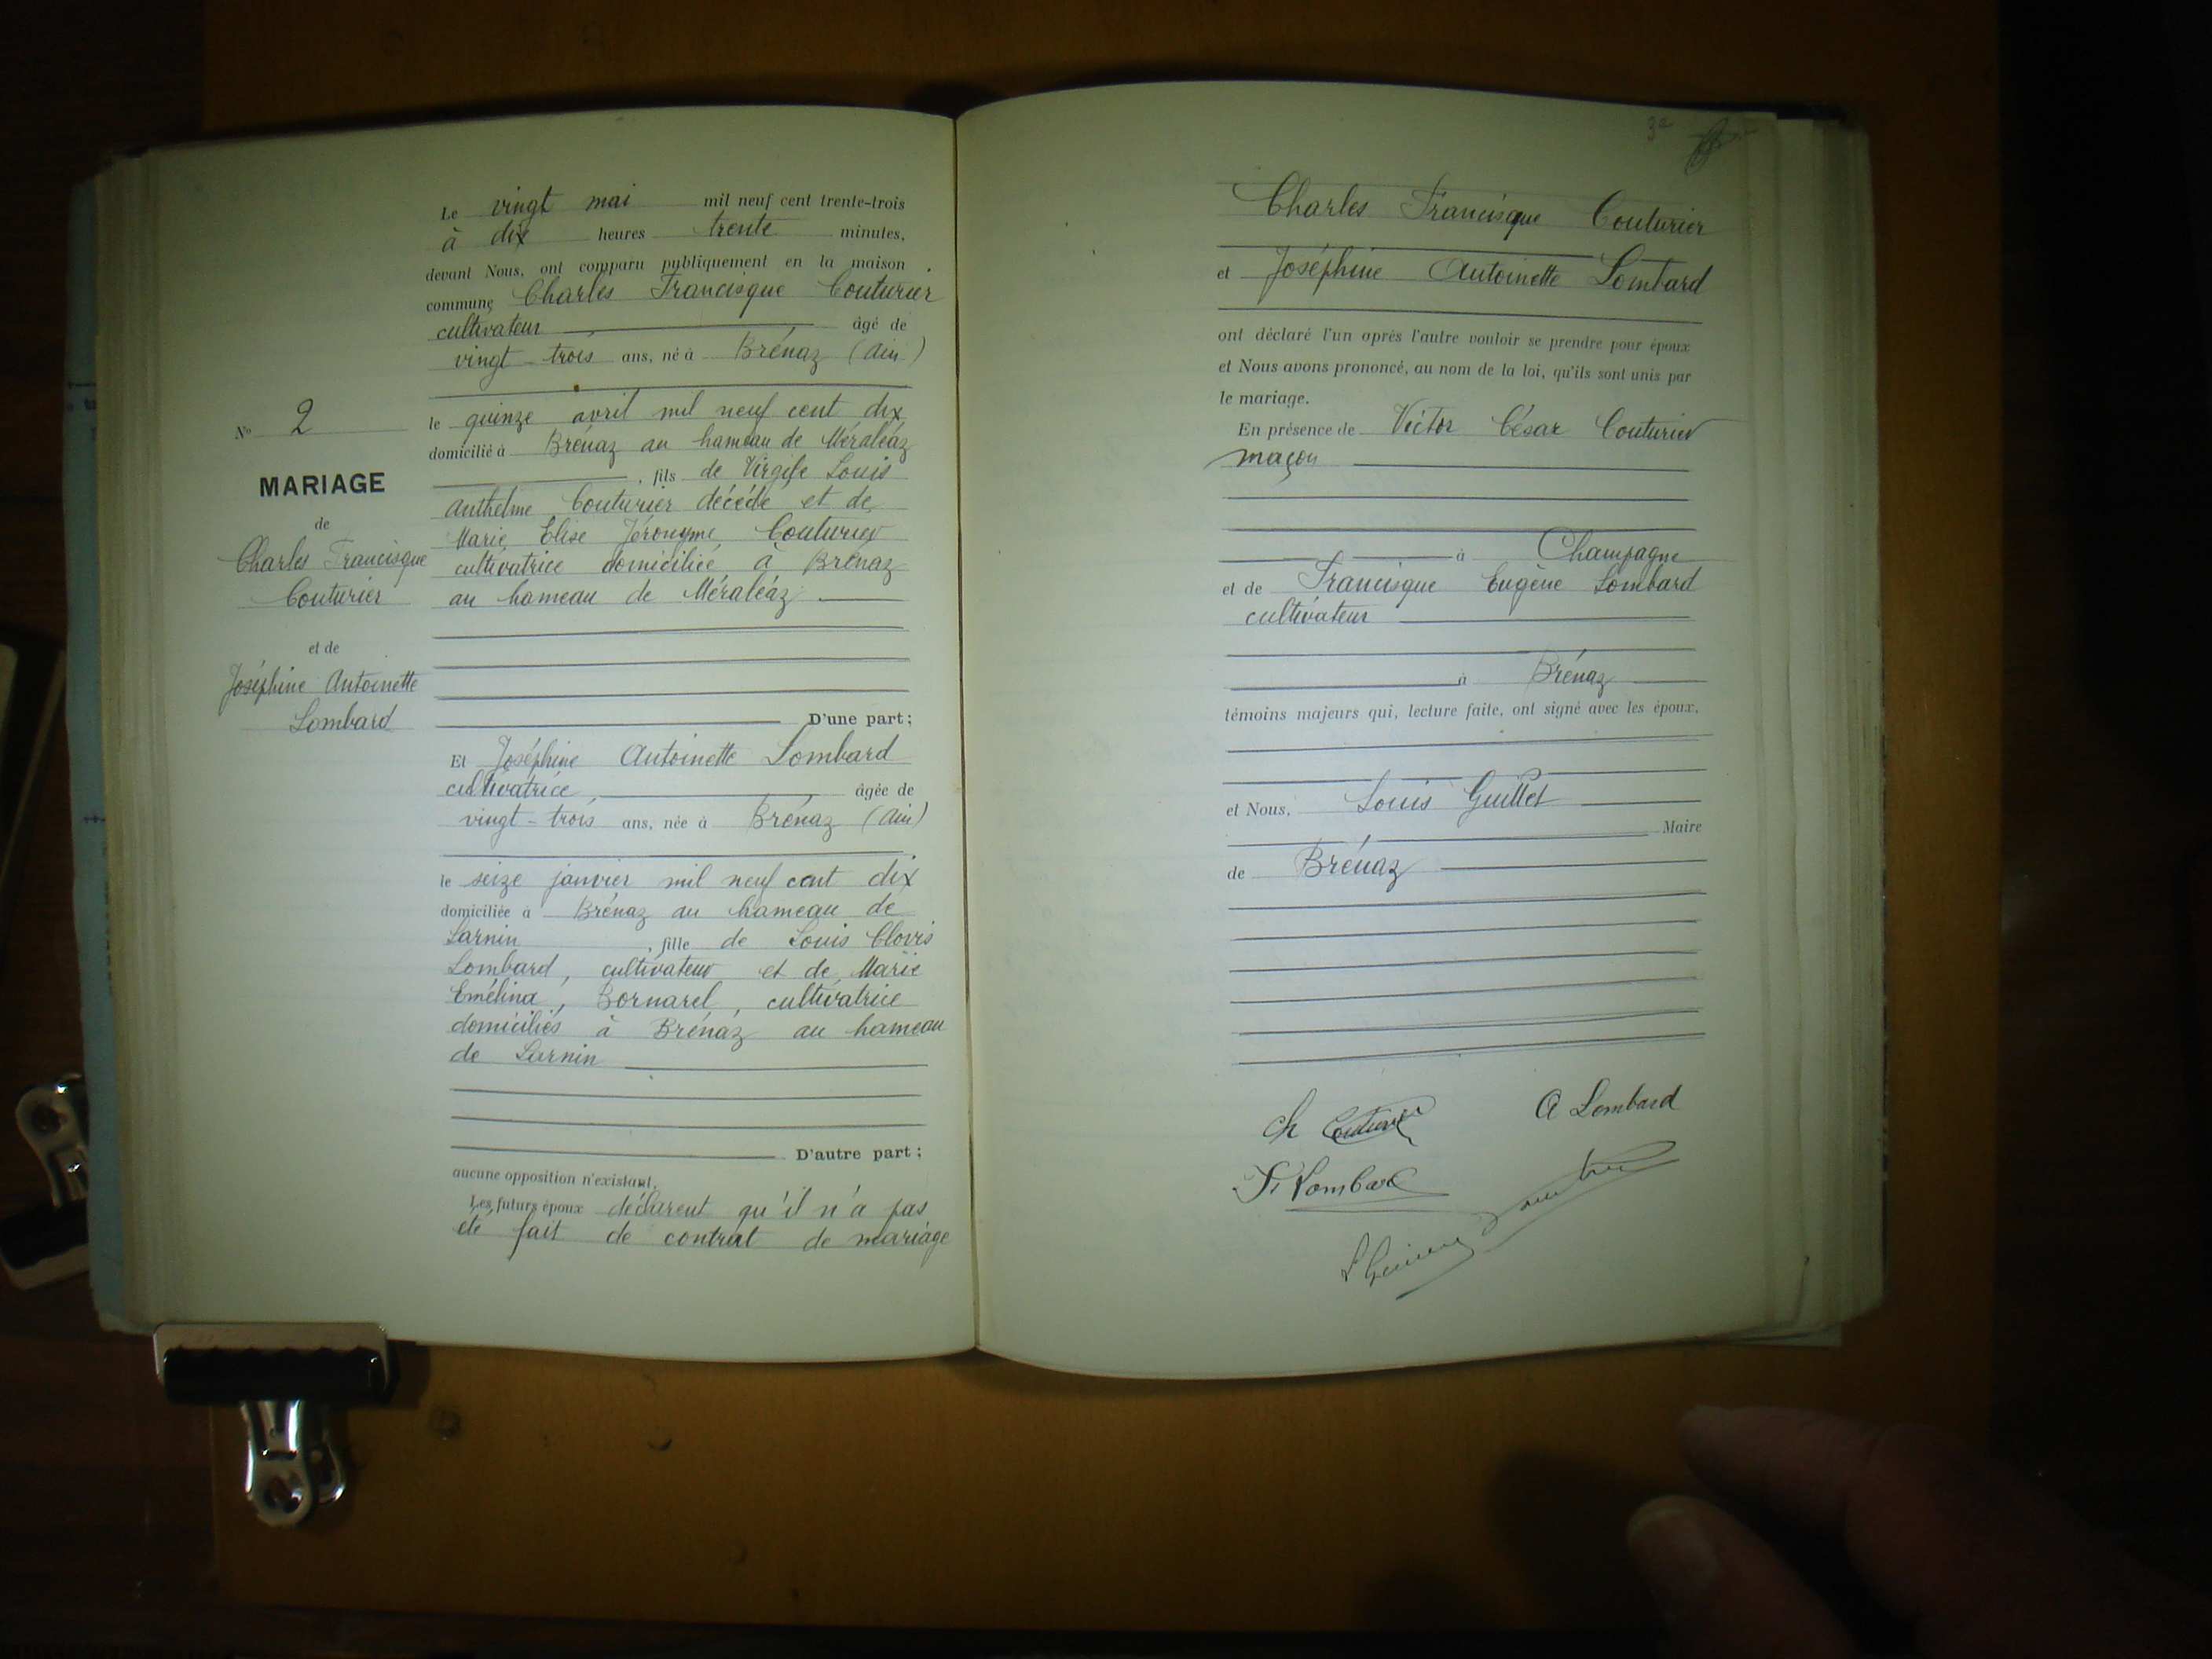 Le vingt mai mil neuf cent trente-trois
à dix heures trente minutes,
devant Nous, ont comparu publiquement en la maison
commune Charles Francisque Couturier
cultivateur âgé de
vingt-trois ans, né à Brénaz (Ain)
le quinze avril mil neuf cent dix
domicilié à Brénaz au hameau de Méraléaz
, fils de Virgile Louis
Anthelme Couturier décédé et de
Marie Elise Jéronyme Couturier
cultivatrice domiciliée à Brénaz
au hameau de Méraléaz
D'une part;
Nº 2
MARIAGE
de
Charles Francisque
Couturier
et de
Joséphine Antoinette
Lombard
Et Joséphine Antoinette Lombard
cultivatrice âgée de
vingt-trois ans, née à Brénaz (Ain)
le seize janvier mil neuf cent dix
domiciliée à Brénaz au hameau de
Sarnin, fille de Louis Clovis
Lombard, cultivateur et de Marie
Emélina, Bornarel, cultivatrice
domiciliés à Brénaz au hameau
de Sarnin
D'autre part;
aucune opposition n'existant.
Les futurs époux déclarent qu'il n'a pas
été fait de contrat de mariage
Charles Francisque Couturier
et Joséphine Antoinette Lombard
ont déclaré l'un après l'autre vouloir se prendre pour époux
et Nous avons prononcé, au nom de la loi, qu'ils sont unis par
le mariage.
En présence de Victor César Couturier
maçon
à Champagne
et de Francisque Eugène Lombard
cultivateur
à Brénaz
témoins majeurs qui, lecture faite, ont signé avec les époux,
et Nous, Louis Guillet
Maire
de Brénaz
Ch Couturier A Lombard
Fr Lombard